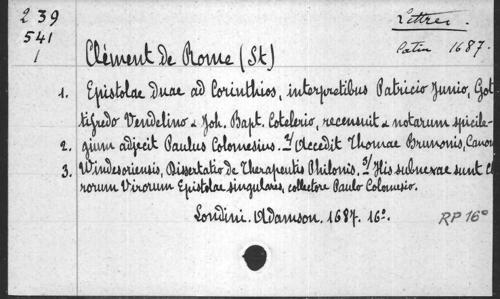 239 Lettres.
541
1 Latin 1687.
Clément de Rome (St)
1. Epistolae Duae ad Corinthios, interpretibus Patricio Junio, Got
tifredo Vendelino & Joh. Bapt. Cotelerio, recensuit & notarum spicile-
2. gium adjecit Paulus Colomesius. 2/ Accedit Thomae Brunonis, Canon
3. Windesoriensis, Dissertatio de Therapeutis Philonis. 3/ His subnexae sunt Cl
rorum Virorum Epistolae singulares, collectore Paulo Colomesio.
Londini. Adamson. 1687. 16º.
RP 16º